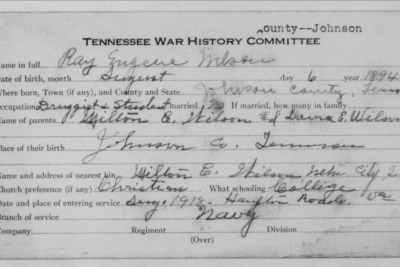 County--Johnson
TENNESSEE WAR HISTORY COMMITTEE
Name in full Ray Eugene Wilson
Date of birth, month August day 6 year 1894
Where born, Town (if any), and County and State Johnson County, Tenn
Occupation Druggist & Student married, no If married, how many in family
Name of parents Milton E. Wilson & Laura E. Wilson
Place of their birth Johnson Co. Tennessee
Name and address of nearest kin Milton E. Wilson City,
Church preference (if any) Christian What schooling College
Date and place of entering service 1918 Hampton Roads Va
Branch of service Navy
Company Regiment Division
(Over)